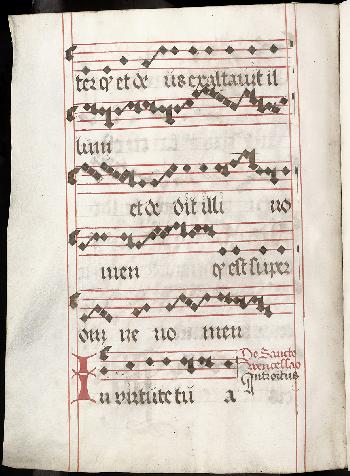 ter qͥ et de us exaltauit il
lum
et de dit illi no
men qͥ est super
om ne no men
De Sancto
wencesslao
Introitus
In uirtute tu a